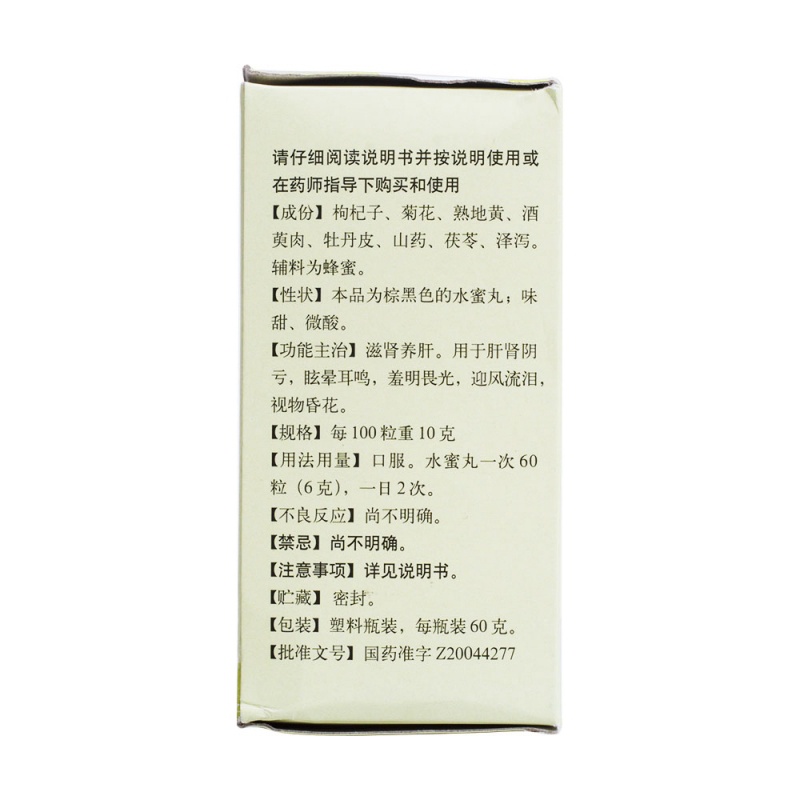 请仔细阅读说明书并按说明使用或
在药师指导下购买和使用
【成份】枸杞子、菊花、熟地黄、酒
萸肉、牡丹皮、山药、茯苓、泽泻。
辅料为蜂蜜。
【性状】本品为棕黑色的水蜜丸；味
甜、微酸。
【功能主治】滋肾养肝。用于肝肾阴
亏，眩晕耳鸣，羞明畏光，迎风流泪，
视物昏花。
【规格】每100粒重10克
【用法用量】口服。水蜜丸一次60
粒（6克），一日2次。
【不良反应】尚不明确。
【禁忌】尚不明确。
【注意事项】详见说明书。
【贮藏】密封。
【包装】塑料瓶装，每瓶装60克。
【批准文号】国药准字Z20044277